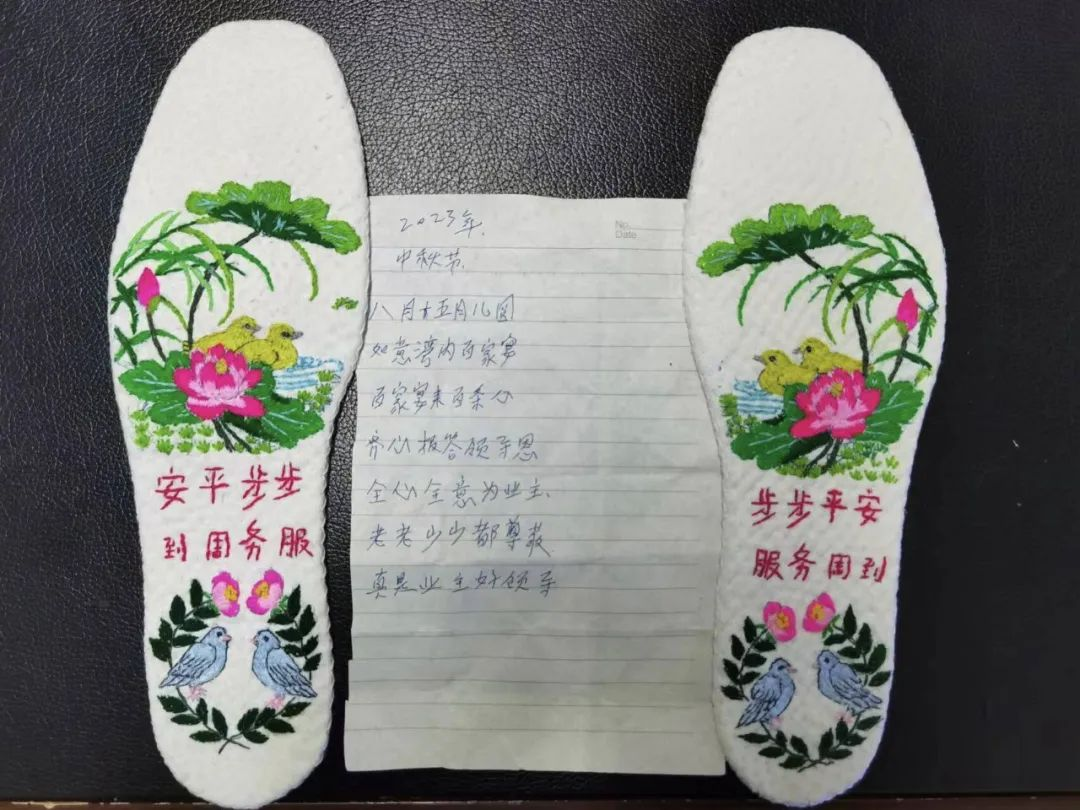 安平步步
到周务服
No.
Date
2023年.
中秋节.
八月十五月儿圆
如意湾内百家宴
百家宴来百条心
齐心报答领导恩
全心全意为业主.
老老少少都尊敬
真是业主好领导
步步平安
服务周到